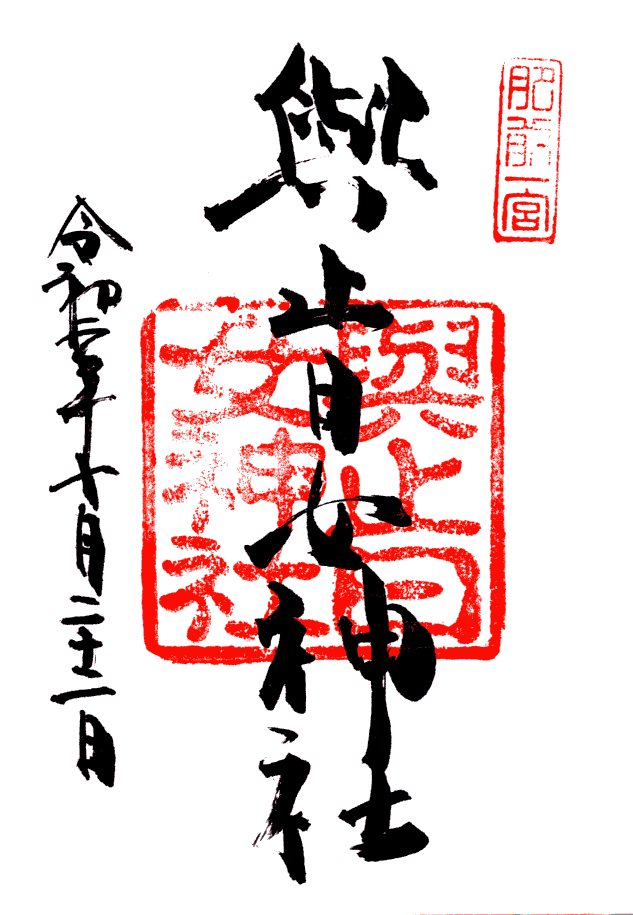 肥前一宮
與止日女神社
與止日
女神社
令和六年十月二十二日